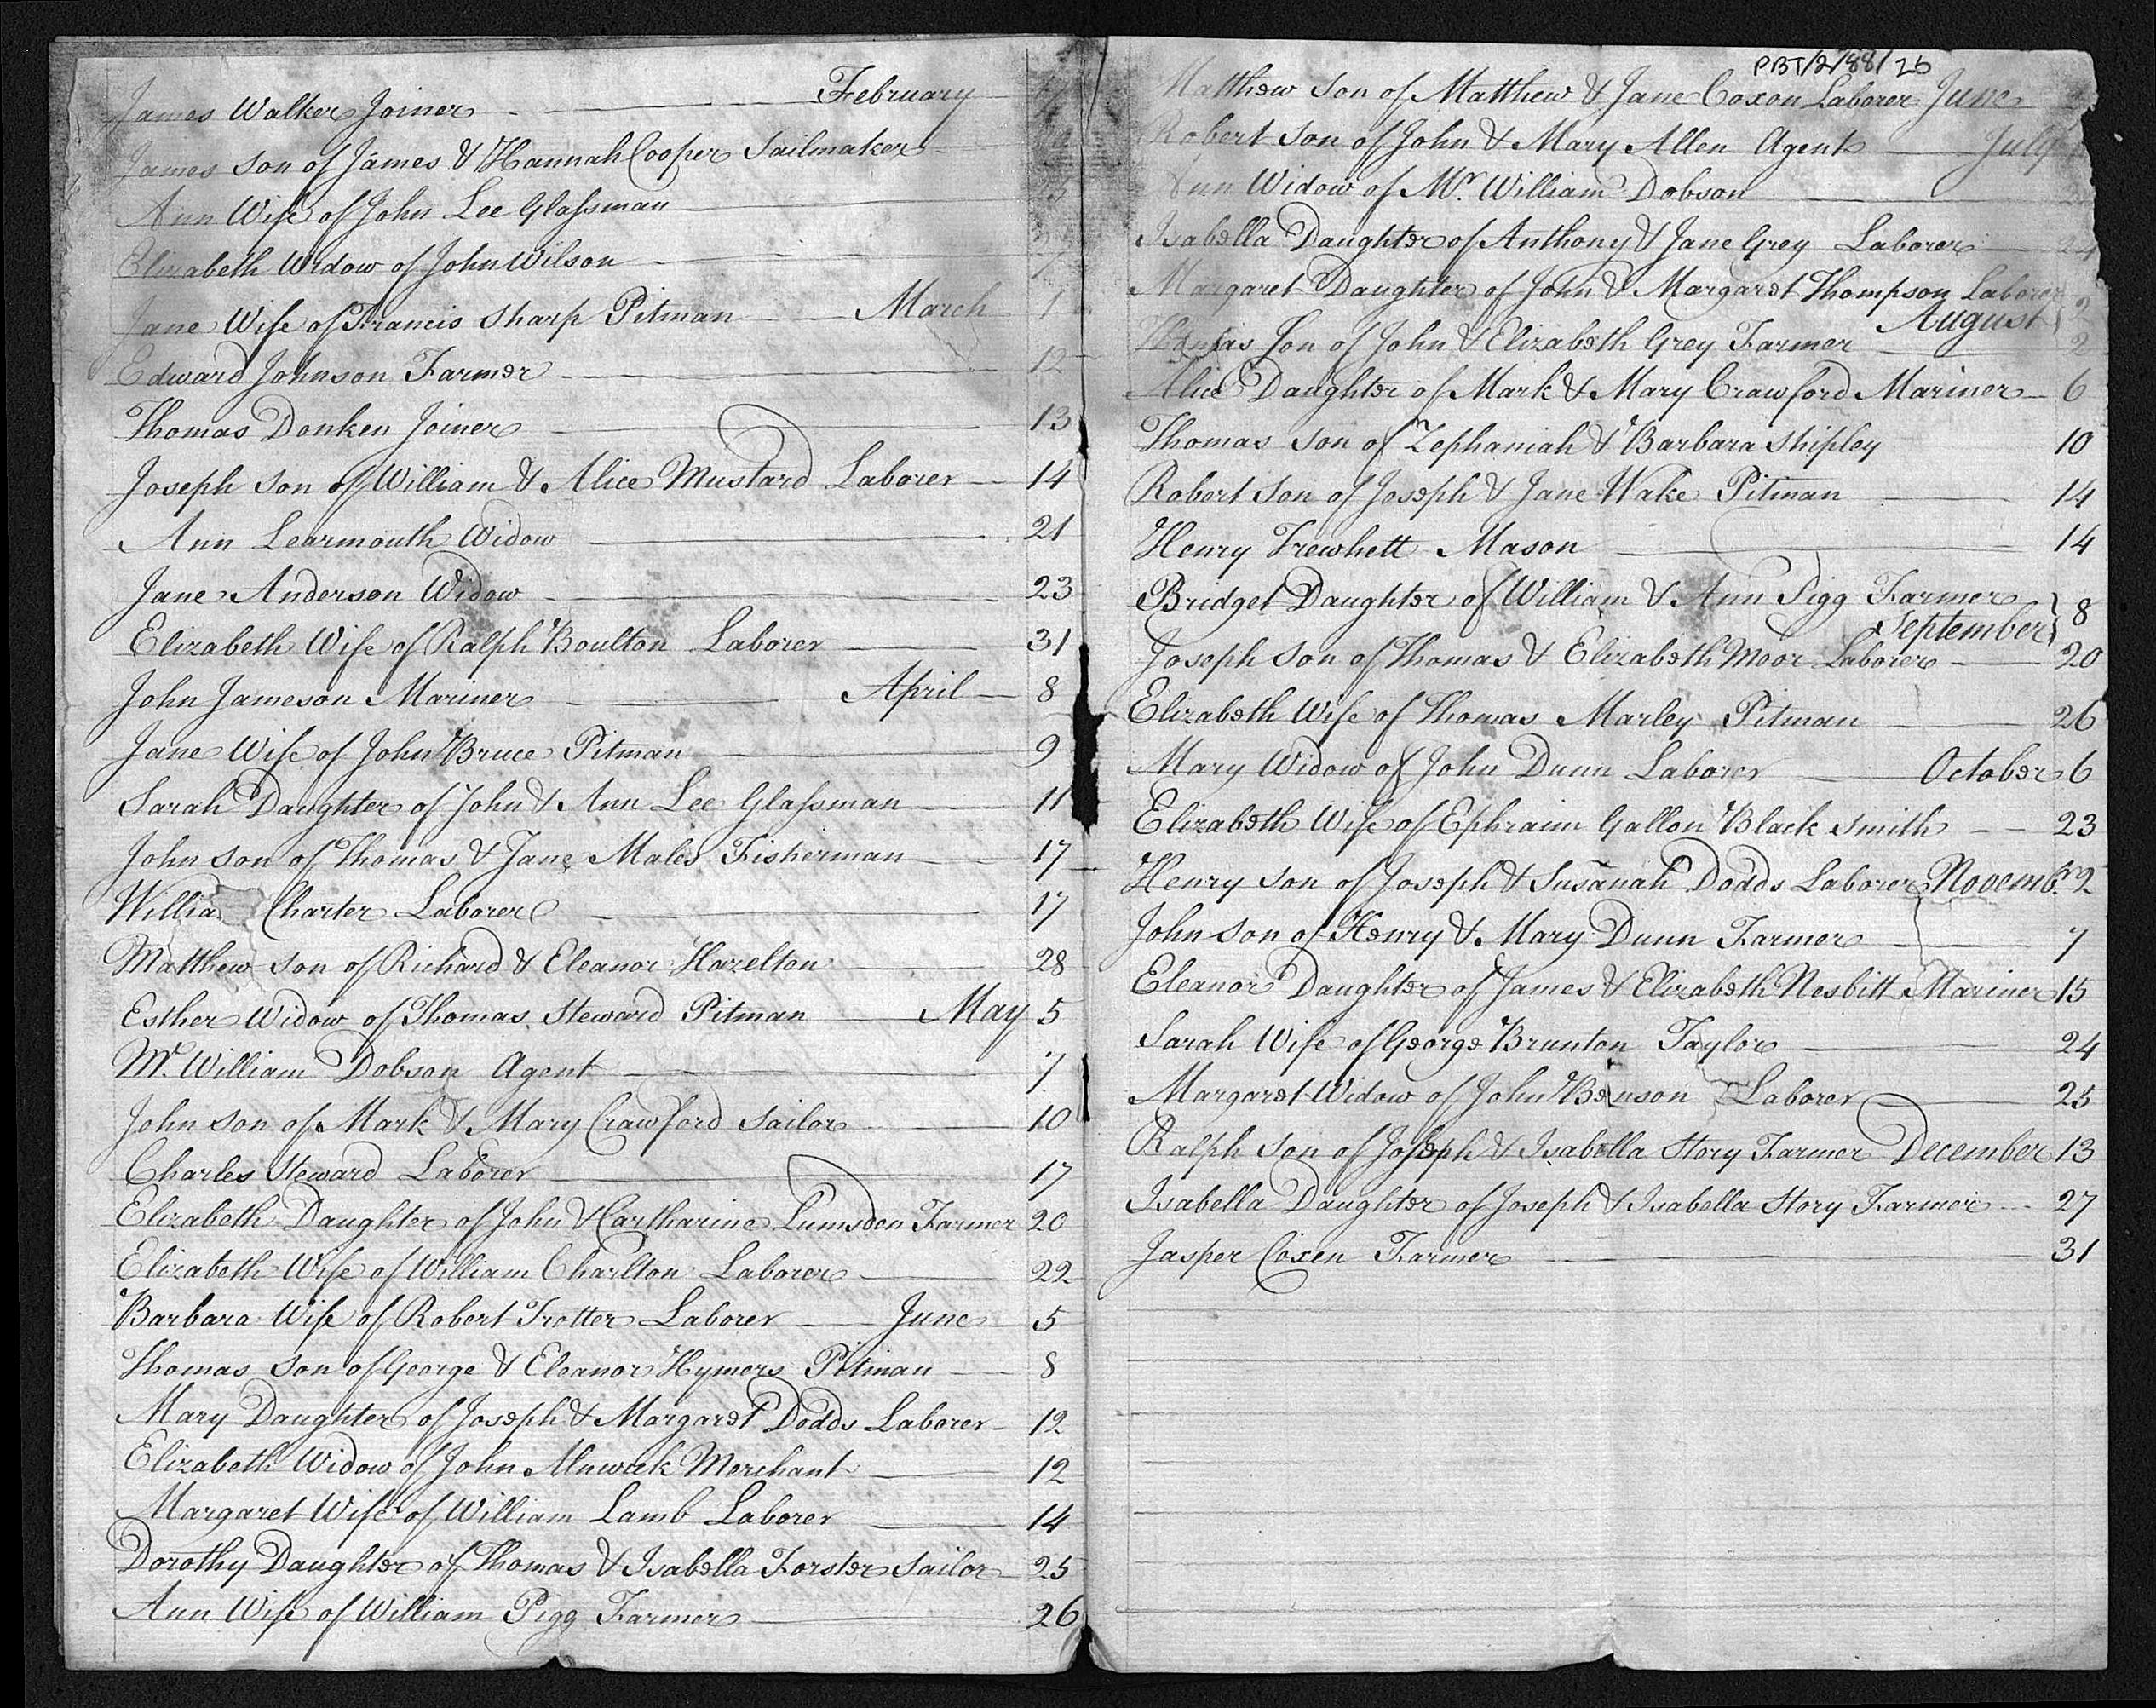 James Walker Joiner February
James Son of James & Hannah Cooper Sailmaker
Ann Wife of John Lee Glassman
Elizabeth Widow of John Wilson
Jane Wife of Francis Sharp Pitman March 1
Edward Johnson Farmer 12
Thomas Donken Joiner 13
Joseph Son of William & Alice Mustard Laborer 14
Ann Learmouth Widow 21
Jane Anderson Widow 23
Elizabeth Wife of Ralph Boulton Laborer 31
John Jameson Mariner April 8
Jane Wife of John Bruce Pitman 9
Sarah Daughter of John & Ann Lee Glassman 11
John Son of Thomas & Jane Males Fisherman 17
Willia Charter Laborer 17
Matthew Son of Richard & Eleanor Hazelton 28
Esther Widow of Thomas Steward Pitman May 5
Mr. William Dobson Agent 7
John Son of Mark & Mary Crawford Sailor 10
Charles Steward Laborer 17
Elizabeth Daughter of John & Cartharine Lumsden Farmer 20
Elizabeth Wife of William Charlton Laborer 22
Barbara Wife of Robert Trotter Laborer June 5
Thomas Son of George & Eleanor Hymers Pitman 8
Mary Daughter of Joseph & Margaret Dodds Laborer 12
Elizabeth Widow of John Alnwick Merchant 12
Margaret Wife of William Lamb Laborer 14
Dorothy Daughter of Thomas & Isabella Forster Sailor 25
Ann Wife of William Pigg Farmer 26
PBT/2/88/25
Matthew Son of Matthew & Jane Coxon Laborer June
Robert Son of John & Mary Allen Agent July
Ann Widow of Mr. William Dobson
Isabella Daughter of Anthony & Jane Grey Laborer 24
Margaret Daughter of John & Margaret Thompson Laborer
August 2
Thomas Son of John & Elizabeth Grey Farmer 2
Alice Daughter of Mark & Mary Crawford Mariner 6
Thomas Son of Zephaniah & Barbara Shipley 10
Robert Son of Joseph & Jane Wake Pitman 14
Henry Trewhett Mason 14
Bridget Daughter of William & Ann Pigg Farmer
September 8
Joseph Son of Thomas & Elizabeth Moor Laborer 20
Elizabeth Wife of Thomas Marley Pitman 26
Mary Widow of John Dunn Laborer October 6
Elizabeth Wife of Ephraim Gallon Black Smith 23
Henry Son of Joseph & Susanah Dodds Laborer Novembr. 2
John Son of Henry & Mary Dunn Farmer 7
Eleanor Daughter of James & Elizabeth Nesbitt Mariner 15
Sarah Wife of George Brunton Taylor 24
Margaret Widow of John Benson Laborer 25
Ralph Son of Joseph & Isabella Story Farmer December 13
Isabella Daughter of Joseph & Isabella Story Farmer 27
Jasper Coxen Farmer 31